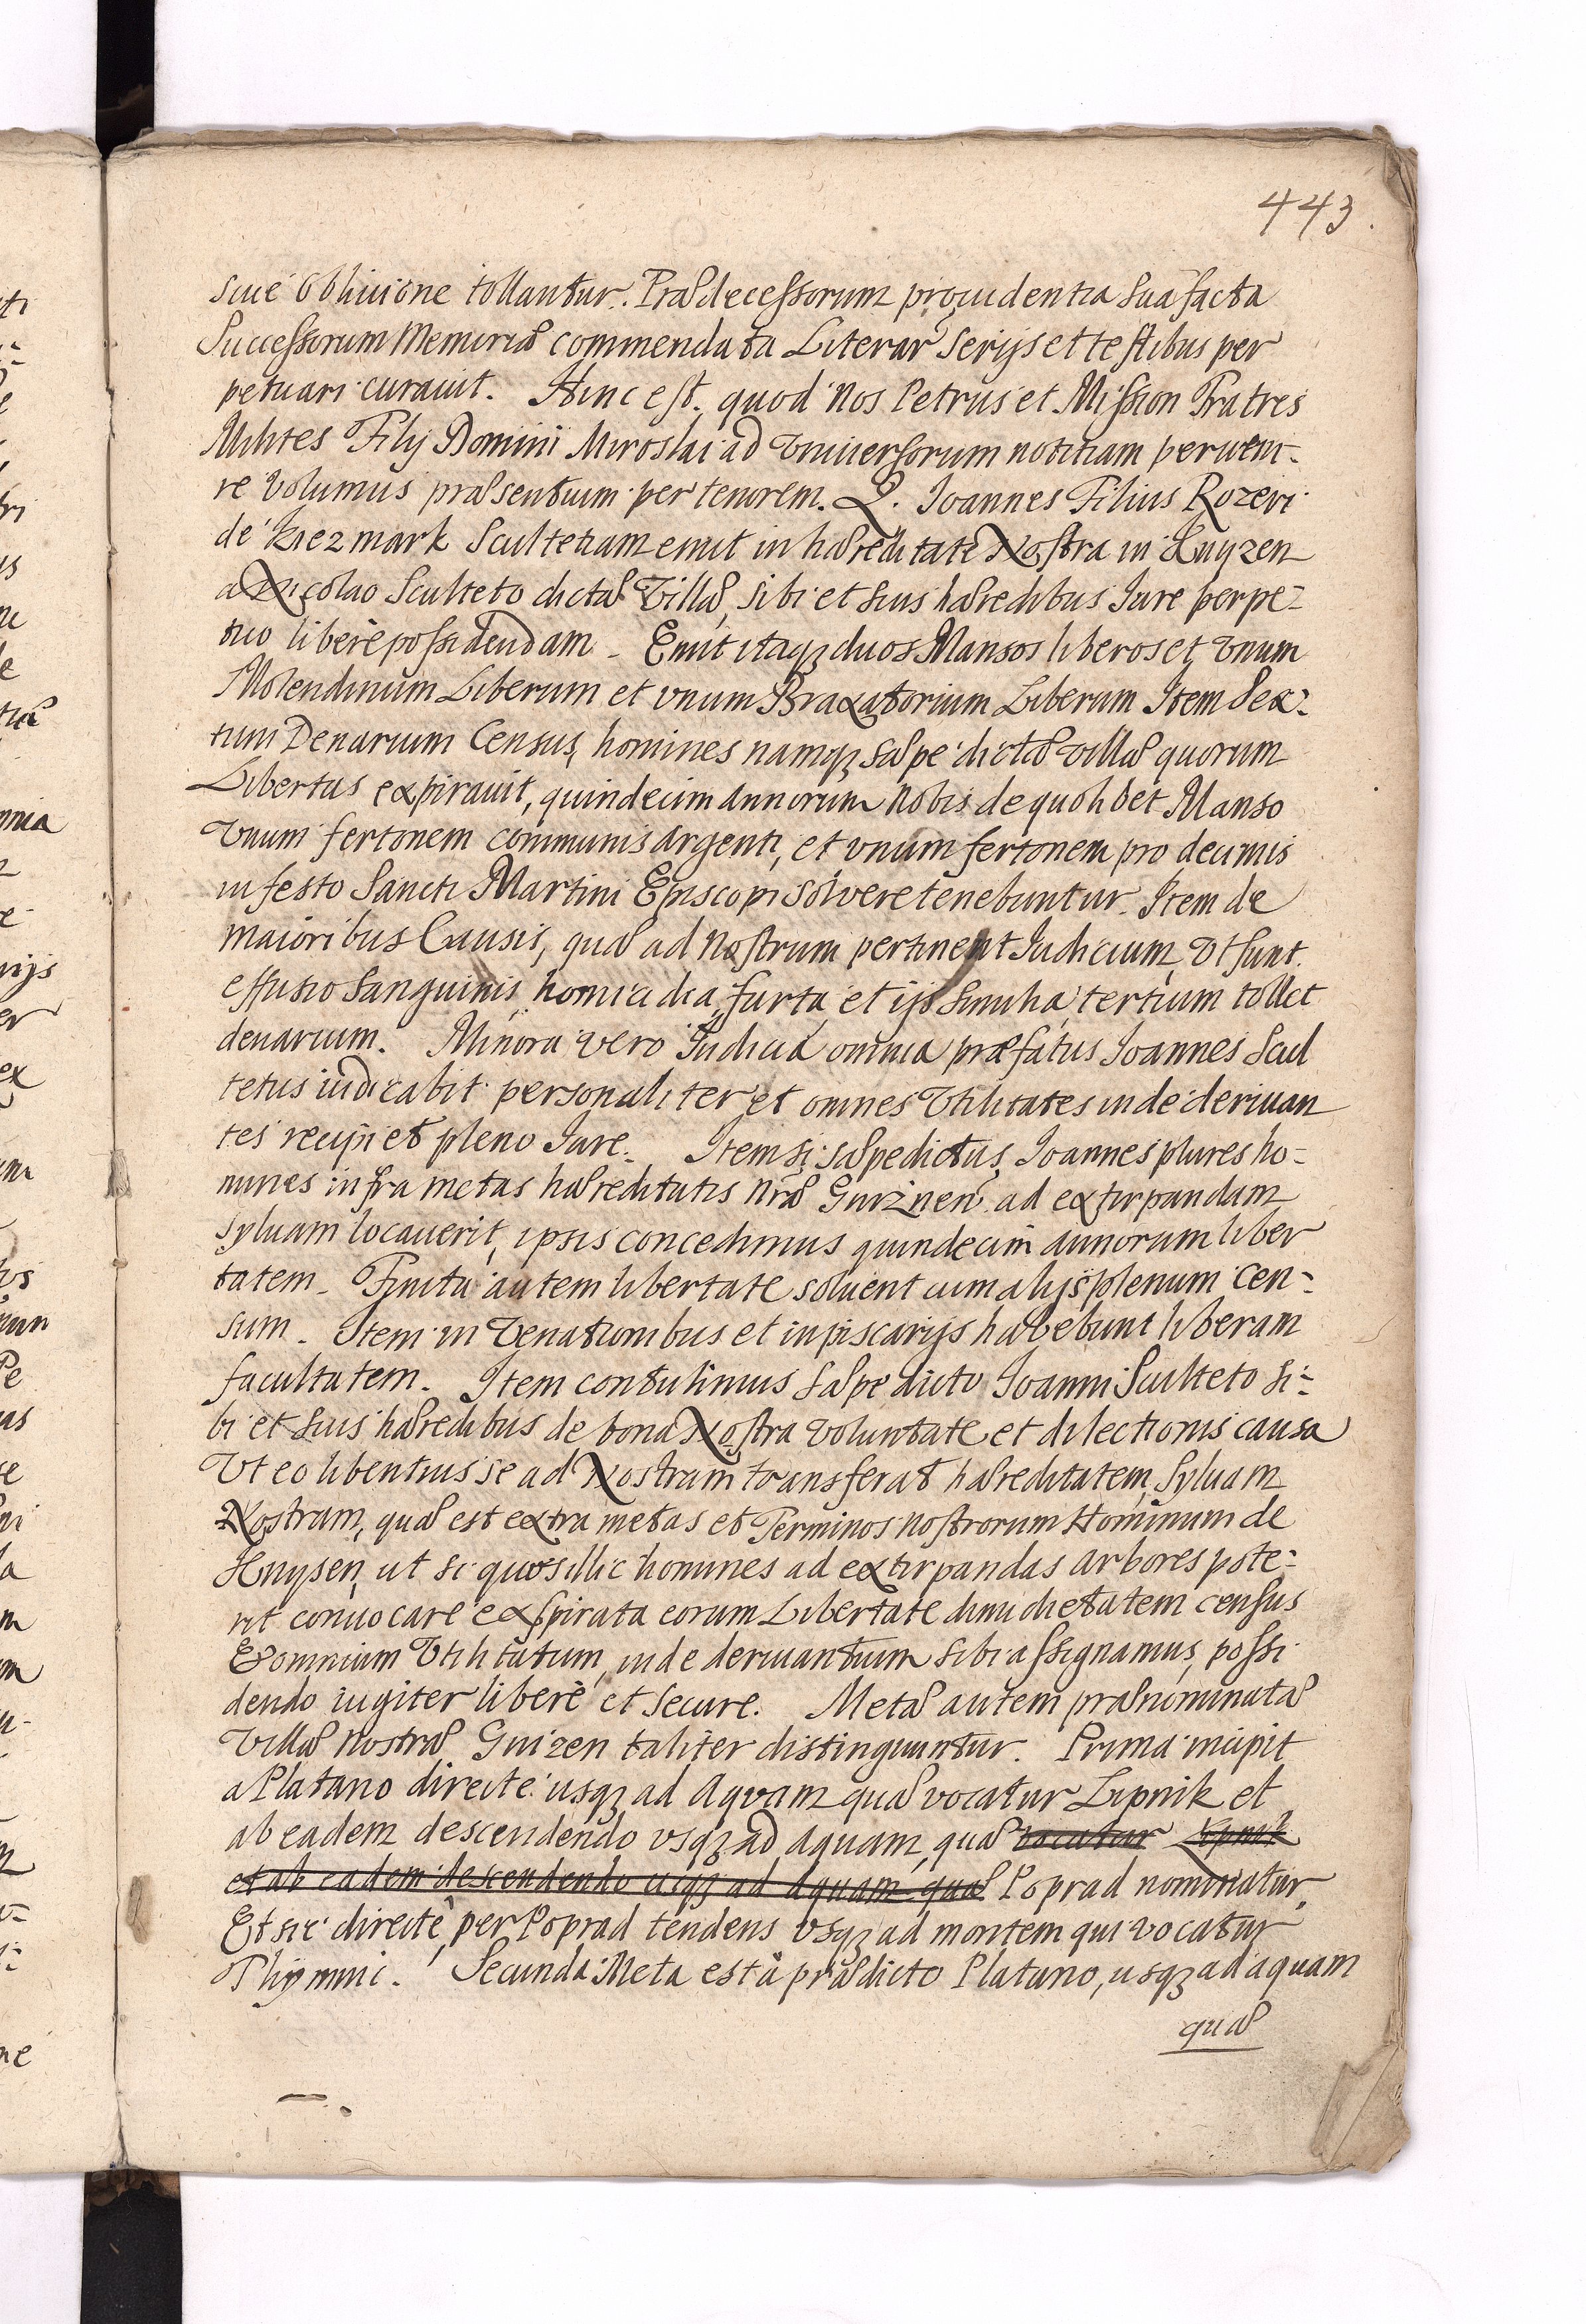 443.
siue obliuione tollantur. Prædecessorum prouidentia sua facta
Successorum Memoriæ commendata Literar serijs et testibus per
petuari curauit. Hinc est. quod Nos Petrus et Mission Fratres
Milites Filij Domini Miroslai ad Vniuersorum notitiam perueni-
re Volumus præsentium per tenorem. Q. Joannes Filius Rozeri
de Kiezmark Scultetiam emit in hæreditate Nostra in Knyzen
a Nicolao Sculteto dictæ Villæ, sibi et suis hæredibus Jure perpe-
tuo liberè possidendam. Emit itaqz duos Mansos liberos et vnum
Molendinum Liberum et vnum Braxatorium Liberum Item Sex-
tum Denarium Census, homines namqz sæpe dictæ villæ quorum
Libertas expirauit, quindecim annorum Nobis de quolibet Manso
Vnum fertonem communis argenti, et vnum fertonem pro decimis
in festo Sancti Martini Episcopi solvere tenebuntur. Item de
maioribus Causis, quæ ad Nostrum pertinent Iudicium, Vt sunt
effusio Sanguinis, homicidia, furta, et ijs similia, tertium tollet
denarium. Minora vero Iudicia omnia præfatus Joannes Scul
tetus iudicabit personaliter et omnes Vtilitates inde deriuan
tes recipiet pleno Jure. Item si sæpedictus Joannes plures ho-
mines infra metas hæreditatis Nræ Gniznen ad extirpandam
syluam locauerit, ipsis concedimus quindecim annorum liber
tatem. Finita autem libertate soluent cum alijs plenum Cen-
sum. Item in Venationibus et in piscarijs habebunt liberam
facultatem. Item contulimus sæpe dicto Joanni Sculteto si-
bi et suis hæredibus de bona Nostra Voluntate et dilectionis causa
Vt eo libentius se ad Nostram transferat hæreditatem, Syluam
Nostram, quæ est extra metas et Terminos Nostrorum Hominum de
Knysen, ut si quos illic homines ad extirpandas arbores pote-
rit conuocare expirata eorum Libertate dimidietatem census
& omnium Vtilitatum, inde deriuantium sibi assignamus, possi
dendo iugiter liberè et secure. Metæ autem prænominatæ
Villæ Nostræ Gnizen taliter distinguuntur. Prima incipit
a Platano directe usqz ad Aqvam quæ vocatur Lipnik et
ab eadem descendendo vsqz ad aquam, quæ vocatur Lipnik
et ab eadem descendendo usqz ad Aquam quæ Poprad nominatur.
Et sic directè per Poprad tendens vsqz ad montem qui vocatur
Plijmnic. Secunda Meta est à prædicto Platano, usqz ad aquam
quæ